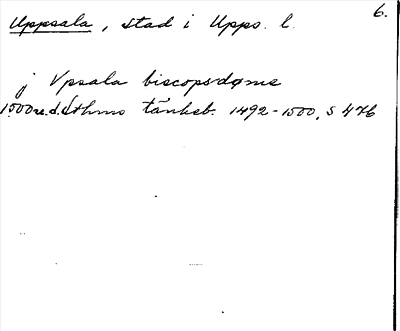 6.
Uppsala, stad i Upps. l.
j Vpsala biscopsdøme
1500 u.d. Sthms tänkeb. 1492-1500, s 476